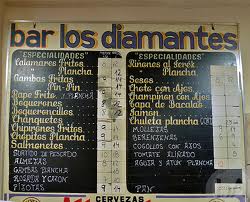 bar los diamantes
"ESPECIALIDADES"
Calamares Fritos
" Plancha
Gambas Fritas
" Pin-Pin
Rape Frito y PLANCHA
Boquerones
Boqueroncillos
Chanquetes
Chipirones Fritos
Chopitos Plancha
Salmonetes
SURTIDO DE PESCADO
ALMEJAS
GAMBAS PLANCHA
ROSADA Y CAZON
PIJOTAS
"ESPECIALIDADES"
Riñones al Jerez
" Plancha
Sesos
Choto con Ajos
Champiñon con Ajos
Papa de Bacalao
Jamón
Chuleta plancha
MOLLEJAS
BERENJENAS
COGOLLOS CON AJOS
TOMATE ALIÑADO
AGUJA Y ATUN PLANCHA
PAN
CERVEZAS